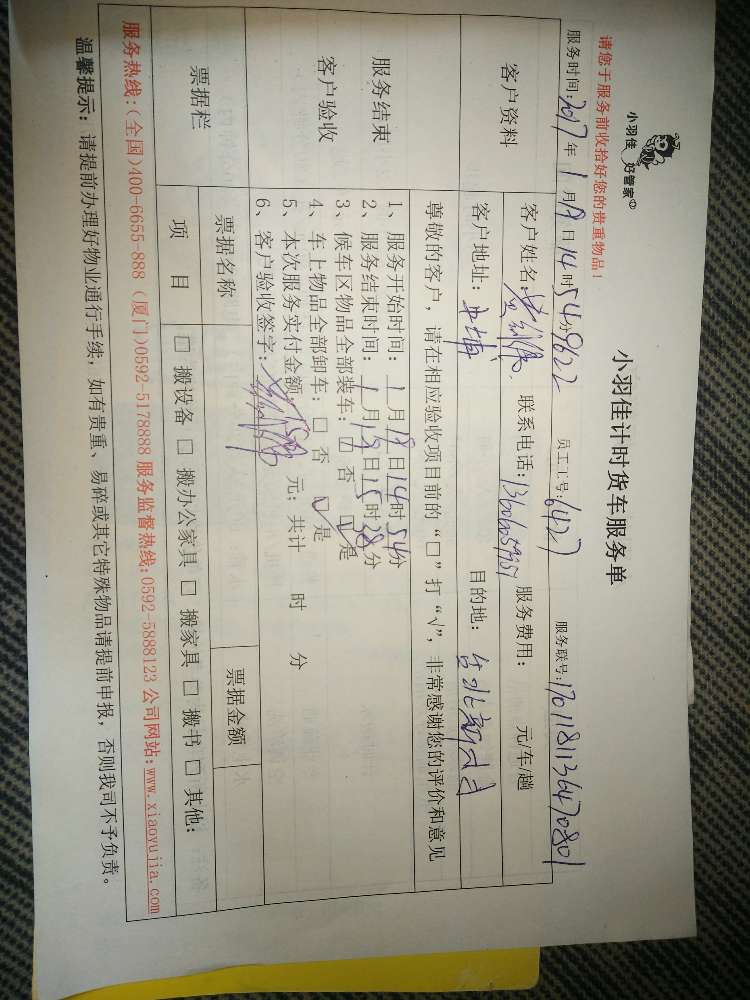 小羽佳 好管家
小羽佳计时货车服务单
请您于服务前收拾好您的贵重物品！
服务时间：2017年1月19日14时54分 9622 员工工号：6427 服务联号：1701181136470801
客户资料
客户姓名： 联系电话：13606059151 服务费用： 元/车/趟
客户地址： 目的地：
服务结束
客户验收
尊敬的客户，请在相应验收项目前的“□”打“√”，非常感谢您的评价和意见
1、服务开始时间：1月19日14时54分
2、服务结束时间：1月19日15时38分
3、候车区物品全部装车：□ 否 ☑ 是
4、车上物品全部卸车：□ 否 ☑ 是
5、本次服务实付金额： 元；共计 时 分
6、客户验收签字：
票据栏
票据名称 票据金额
项 目 □ 搬设备 □ 搬办公家具 □ 搬家具 □ 搬书 □ 其他：
服务热线：(全国)400-6655-888 (厦门)0592-5178888 服务监督热线：0592-5888123 公司网站：www.xiaoyujia.com
温馨提示：请提前办理好物业通行手续，如有贵重、易碎或其它特殊物品请提前申报，否则我司不予负责。